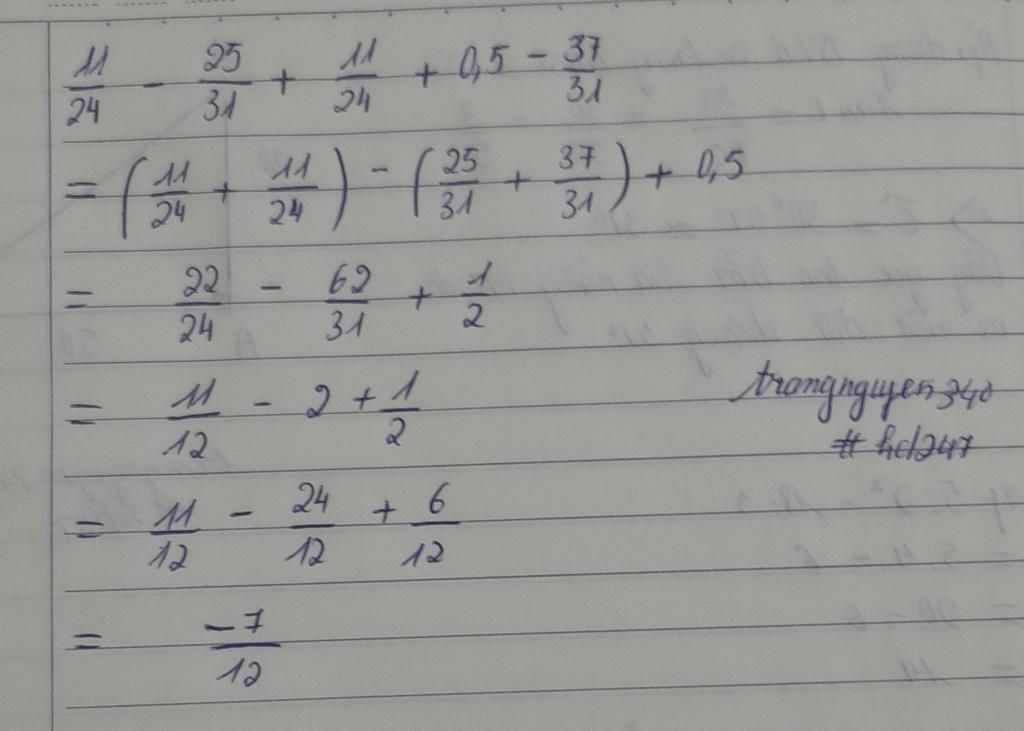 11/24 - 25/31 + 11/24 + 0,5 - 37/31
= (11/24 + 11/24) - (25/31 + 37/31) + 0,5
= 22/24 - 62/31 + 1/2
= 11/12 - 2 + 1/2
trangnguyen340
# hd247
= 11/12 - 24/12 + 6/12
= -7/12